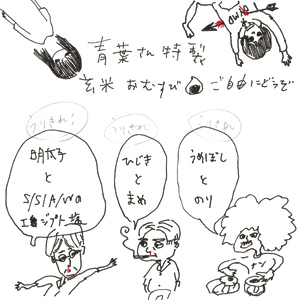 awib
青葉さん特製
玄米 おむすび ご自由にどうぞ
うりきれ!
うりきれ
うりきれ
明太子
と
S/S/A/Wの
エジプト塩
ひじき
と
まめ
うめぼし
と
のり